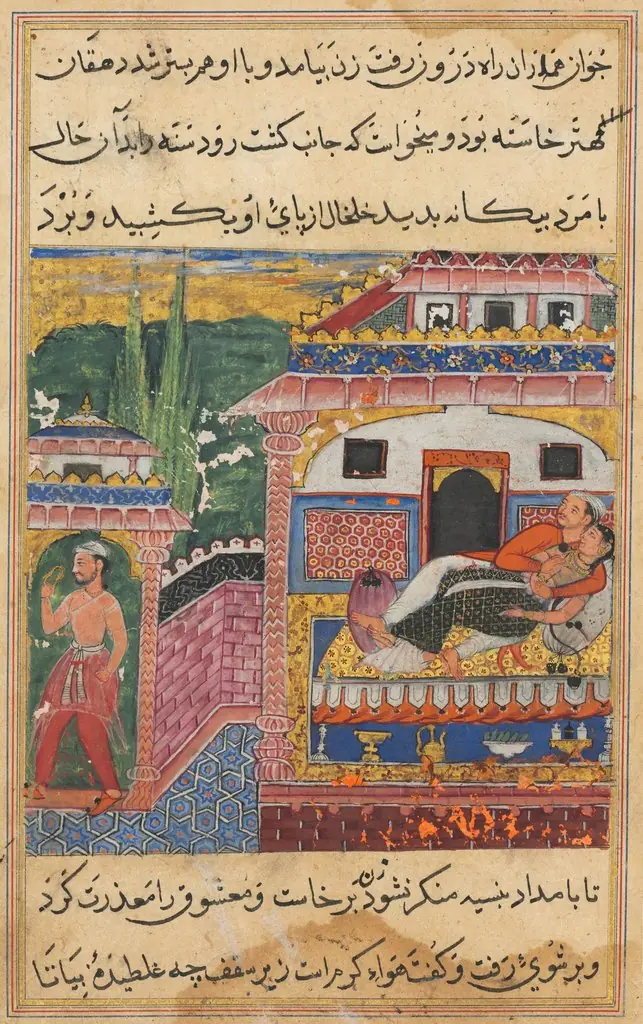 جوان همدران راه درون رفت زن بیامد و با او هم بستر شد دهقان
مهتر خاسته بود و میخواست که جانب کشت رود را بدآن حال
با مرد بیکانه بدید خلخال از پائ او بکشید و بُرد
تا بامداد بنسیه منکر نشود زن برخاست و معشوق را معذرت کرد
و بر شوئ رفت و کفت هواء کرم است زیر سقف چه غلطیدهٔ بیا تا